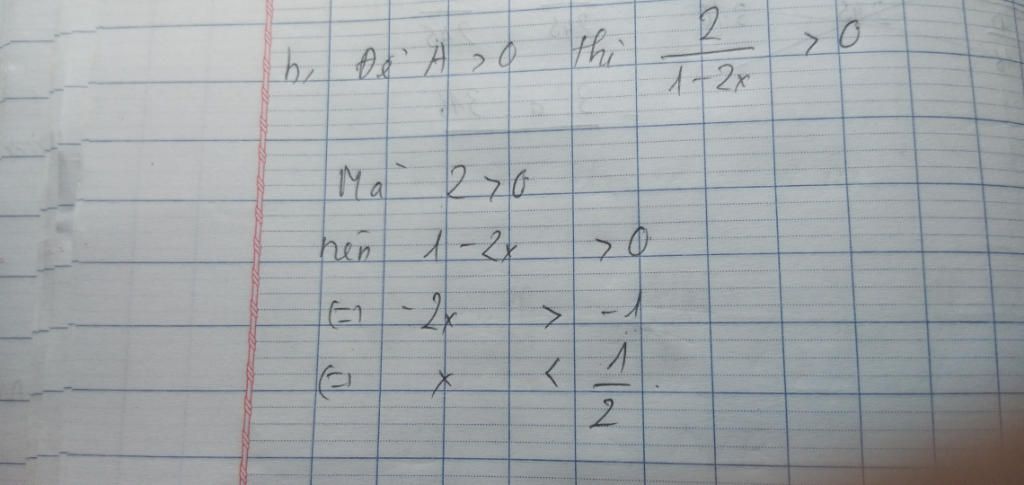 b, Để A > 0 thì 2/(1-2x) > 0
Mà 2 > 0
nên 1 - 2x > 0
(=) -2x > -1
(=) x < 1/2.